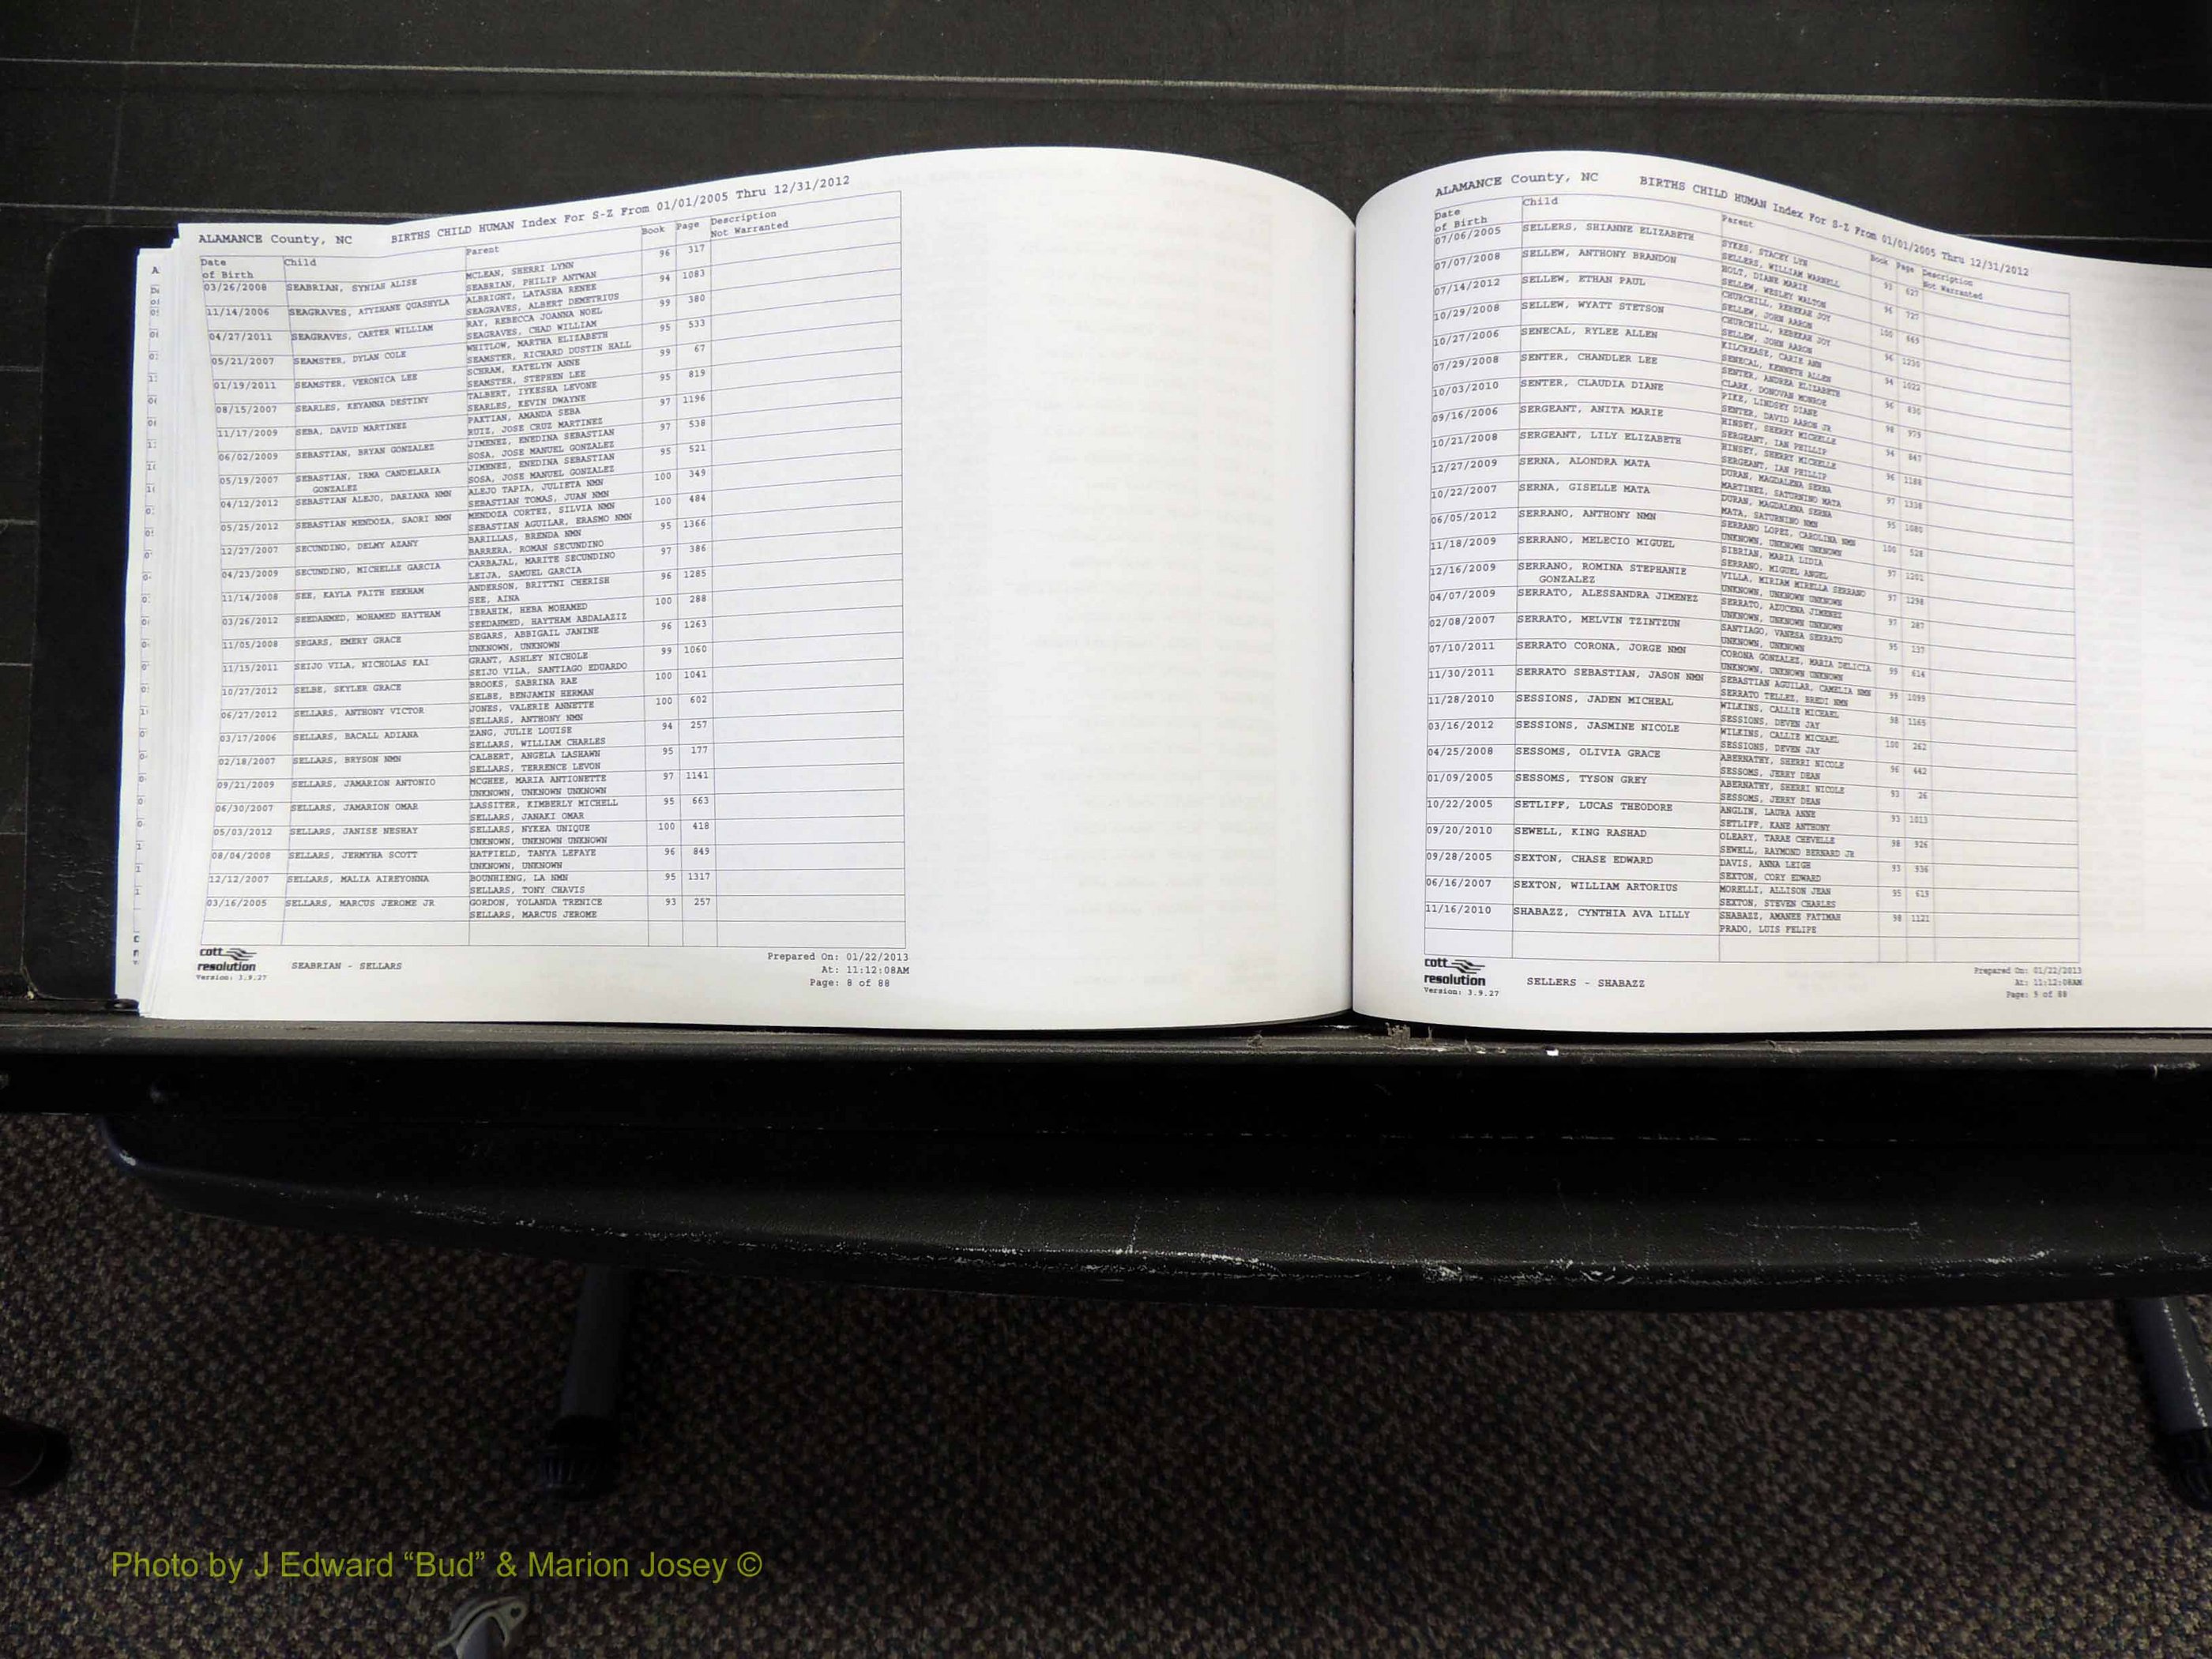 ALAMANCE County, NC BIRTHS CHILD HUMAN Index For S-Z From 01/01/2005 Thru 12/31/2012
Date of Birth Child Parent Book Page Description Not Warranted
03/26/2008 SEABRIAN, SYNIAH ALISE MCLEAN, SHERRI LYNN 96 317
SEABRIAN, PHILIP ANTWAN
11/14/2006 SEAGRAVES, ATYZHANE QUASHYLA ALBRIGHT, LATASHA RENEE 94 1083
SEAGRAVES, ALBERT DEMETRIUS
04/27/2011 SEAGRAVES, CARTER WILLIAM RAY, REBECCA JOANNA NOEL 99 380
SEAGRAVES, CHAD WILLIAM
05/21/2007 SEAMSTER, DYLAN COLE WHITLOW, MARTHA ELIZABETH 95 533
SEAMSTER, RICHARD DUSTIN HALL
01/19/2011 SEAMSTER, VERONICA LEE SCHRAM, KATELYN ANNE 99 67
SEAMSTER, STEPHEN LEE
08/15/2007 SEARLES, KEYANNA DESTINY TALBERT, IYKESHA LEVONE 95 819
SEARLES, KEVIN DWAYNE
11/17/2009 SEBA, DAVID MARTINEZ PAXTIAN, AMANDA SEBA 97 1196
RUIZ, JOSE CRUZ MARTINEZ
06/02/2009 SEBASTIAN, BRYAN GONZALEZ JIMENEZ, ENEDINA SEBASTIAN 97 538
SOSA, JOSE MANUEL GONZALEZ
05/19/2007 SEBASTIAN, IRMA CANDELARIA JIMENEZ, ENEDINA SEBASTIAN 95 521
GONZALEZ SOSA, JOSE MANUEL GONZALEZ
04/12/2012 SEBASTIAN ALEJO, DARIANA NMN ALEJO TAPIA, JULIETA NMN 100 349
SEBASTIAN TOMAS, JUAN NMN
05/25/2012 SEBASTIAN MENDOZA, SAORI NMN MENDOZA CORTEZ, SILVIA NMN 100 484
SEBASTIAN AGUILAR, ERASMO NMN
12/27/2007 SECUNDINO, DELMY AZANY BARILLAS, BRENDA NMN 95 1366
BARRERA, ROMAN SECUNDINO
04/23/2009 SECUNDINO, MICHELLE GARCIA CARBAJAL, MARITE SECUNDINO 97 386
LEIJA, SAMUEL GARCIA
11/14/2008 SEE, KAYLA FAITH EEKHAM ANDERSON, BRITTNI CHERISH 96 1285
SEE, AINA
03/26/2012 SEEDAHMED, MOHAMED HAYTHAM IBRAHIM, HEBA MOHAMED 100 288
SEEDAHMED, HAYTHAM ABDALAZIZ
11/05/2008 SEGARS, EMERY GRACE SEGARS, ABBIGAIL JANINE 96 1263
UNKNOWN, UNKNOWN
11/15/2011 SEIJO VILA, NICHOLAS KAI GRANT, ASHLEY NICHOLE 99 1060
SEIJO VILA, SANTIAGO EDUARDO
10/27/2012 SELBE, SKYLER GRACE BROOKS, SABRINA RAE 100 1041
SELBE, BENJAMIN HERMAN
06/27/2012 SELLARS, ANTHONY VICTOR JONES, VALERIE ANNETTE 100 602
SELLARS, ANTHONY NMN
03/17/2006 SELLARS, BACALL ADIANA ZANG, JULIE LOUISE 94 257
SELLARS, WILLIAM CHARLES
02/18/2007 SELLARS, BRYSON NMN CALBERT, ANGELA LASHAWN 95 177
SELLARS, TERRENCE LEVON
09/21/2009 SELLARS, JAMARION ANTONIO MCGHEE, MARIA ANTIONETTE 97 1141
UNKNOWN, UNKNOWN UNKNOWN
06/30/2007 SELLARS, JAMARION OMAR LASSITER, KIMBERLY MICHELL 95 663
SELLARS, JANAKI OMAR
05/03/2012 SELLARS, JANISE NESHAY SELLARS, NYKEA UNIQUE 100 418
UNKNOWN, UNKNOWN UNKNOWN
08/04/2008 SELLARS, JERMYHA SCOTT HATFIELD, TANYA LEFAYE 96 849
UNKNOWN, UNKNOWN
12/12/2007 SELLARS, MALIA AIREYONNA BOUNHIENG, LA NMN 95 1317
SELLARS, TONY CHAVIS
03/16/2005 SELLARS, MARCUS JEROME JR GORDON, YOLANDA TRENICE 93 257
SELLARS, MARCUS JEROME
cott resolution Version: 3.9.27
SEABRIAN - SELLARS
Prepared On: 01/22/2013
At: 11:12:08AM
Page: 8 of 88
ALAMANCE County, NC BIRTHS CHILD HUMAN Index For S-Z From 01/01/2005 Thru 12/31/2012
Date of Birth Child Parent Book Page Description Not Warranted
07/06/2005 SELLERS, SHIANNE ELIZABETH SYKES, STACEY LYN 93 627
SELLERS, WILLIAM WARNELL
07/07/2008 SELLEW, ANTHONY BRANDON HOLT, DIANE MARIE 96 727
SELLEW, WESLEY WALTON
07/14/2012 SELLEW, ETHAN PAUL CHURCHILL, REBEKAH JOY 100 665
SELLEW, JOHN AARON
10/29/2008 SELLEW, WYATT STETSON CHURCHILL, REBEKAH JOY 96 1230
SELLEW, JOHN AARON
10/27/2006 SENECAL, RYLEE ALLEN KILCREASE, CARIE ANN 94 1022
SENECAL, KENNETH ALLEN
07/29/2008 SENTER, CHANDLER LEE SENTER, ANDREA ELIZABETH 96 830
CLARK, DONOVAN MONROE
10/03/2010 SENTER, CLAUDIA DIANE PIKE, LINDSEY DIANE 98 979
SENTER, DAVID AARON JR
09/16/2006 SERGEANT, ANITA MARIE HINSEY, SHERRY MICHELLE 94 847
SERGEANT, IAN PHILLIP
10/21/2008 SERGEANT, LILY ELIZABETH HINSEY, SHERRY MICHELLE 96 1188
SERGEANT, IAN PHILLIP
12/27/2009 SERNA, ALONDRA MATA DURAN, MAGDALENA SERNA 97 1338
MARTINEZ, SATURNINO MATA
10/22/2007 SERNA, GISELLE MATA DURAN, MAGDALENA SERNA 95 1080
MATA, SATURNINO NMN
06/05/2012 SERRANO, ANTHONY NMN SERRANO LOPEZ, CAROLINA NMN 100 528
UNKNOWN, UNKNOWN UNKNOWN
11/18/2009 SERRANO, MELECIO MIGUEL SIBRIAN, MARIA LIDIA 97 1202
SERRANO, MIGUEL ANGEL
12/16/2009 SERRANO, ROMINA STEPHANIE VILLA, MIRIAM MIRELLA SERRANO 97 1298
GONZALEZ UNKNOWN, UNKNOWN UNKNOWN
04/07/2009 SERRATO, ALESSANDRA JIMENEZ SERRATO, AZUCENA JIMENEZ 97 287
UNKNOWN, UNKNOWN UNKNOWN
02/08/2007 SERRATO, MELVIN TZINTZUN SANTIAGO, VANESA SERRATO 95 137
UNKNOWN, UNKNOWN
07/10/2011 SERRATO CORONA, JORGE NMN CORONA GONZALEZ, MARIA DELICIA 99 614
UNKNOWN, UNKNOWN UNKNOWN
11/30/2011 SERRATO SEBASTIAN, JASON NMN SEBASTIAN AGUILAR, CAMELIA NMN 99 1099
SERRATO TELLEZ, BREDI NMN
11/28/2010 SESSIONS, JADEN MICHEAL WILKINS, CALLIE MICHAEL 98 1165
SESSIONS, DEVEN JAY
03/16/2012 SESSIONS, JASMINE NICOLE WILKINS, CALLIE MICHAEL 100 262
SESSIONS, DEVEN JAY
04/25/2008 SESSOMS, OLIVIA GRACE ABERNATHY, SHERRI NICOLE 96 442
SESSOMS, JERRY DEAN
01/09/2005 SESSOMS, TYSON GREY ABERNATHY, SHERRI NICOLE 93 26
SESSOMS, JERRY DEAN
10/22/2005 SETLIFF, LUCAS THEODORE ANGLIN, LAURA ANNE 93 1013
SETLIFF, KANE ANTHONY
09/20/2010 SEWELL, KING RASHAD OLEARY, TARAE CHEVELLE 98 926
SEWELL, RAYMOND BERNARD JR
09/28/2005 SEXTON, CHASE EDWARD DAVIS, ANNA LEIGH 93 936
SEXTON, CORY EDWARD
06/16/2007 SEXTON, WILLIAM ARTORIUS MORELLI, ALLISON JEAN 95 619
SEXTON, STEVEN CHARLES
11/16/2010 SHABAZZ, CYNTHIA AVA LILLY SHABAZZ, AMANEE FATIMAH 98 1121
PRADO, LUIS FELIPE
cott resolution Version: 3.9.27
SELLERS - SHABAZZ
Prepared On: 01/22/2013
At: 11:12:08AM
Page: 9 of 88
Photo by J Edward “Bud” & Marion Josey ©